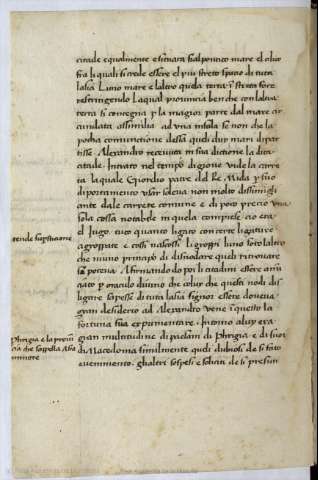 citade equalmente e situata fral ponto mare el olio
fra li quali si crede essere el piu streto spacio di tuta
lasia Luno mare e laltro quela terra in strete fore
restringendo Laqual provincia benche con laltra
terra si contegna p la magior parte dal mare cir
cundata assimilia ad una insola se non che la
pocha comunctione dessa queli duy mari dipar
tisse Alexandro recevuta in sua dictione la dita
citade Intrato nel tempo di giove vide la carre
ta la quale Gordio patre del Re Mida p suo
diportamento usar soleva non molto dissimigli
ante dale carrete comune e di poco precio una
sola cossa notabile in quela comprese cio era
el Iugo tuto quanto ligato con certe ligature
agroppate e cossi nascossi li groppi luno soto laltro
che niuno principio di disnodare queli ritrovare
si poteva Afirmando poi li citadini essere anu
ciato p oraculo divino che colui che questi nodi di
ligare sapesse di tuta lasia signor essere doveva
gran desiderio ad Alexandro vene in questo la
fortuna sua experimentare Intorno alugo era
gran multitudine di paesani di Phrigia e di suoi
di Macedonia similmente queli dubiosi de si fato
evenimento ghaltri sospesi e soliciti de si presun
Phrigia e la provin
cia che sappella Asia
minore